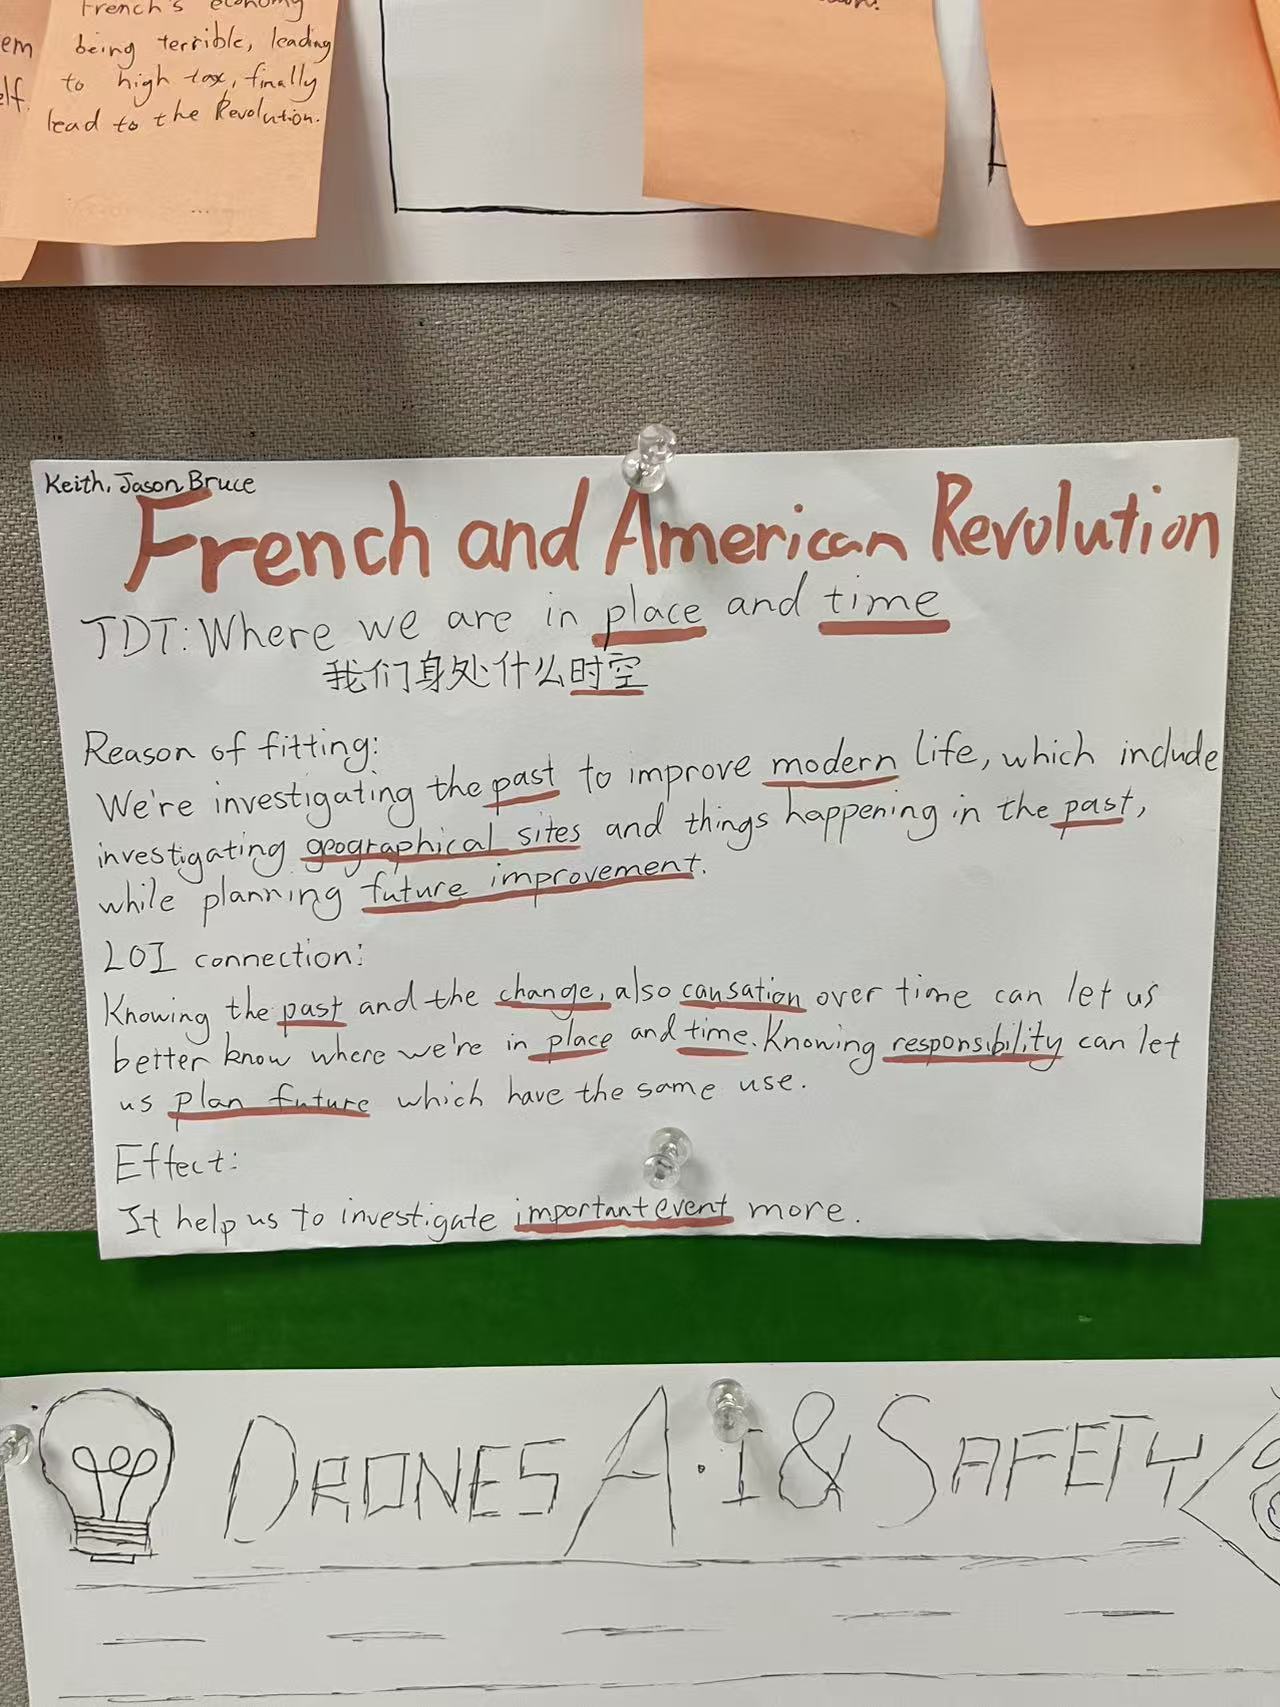 French's economy
em being terrible, leading
elf. to high tax, finally
lead to the Revolution.
Keith, Jason, Bruce
French and American Revolution
TDT: Where we are in place and time
我们身处什么时空
Reason of fitting:
We're investigating the past to improve modern life, which include
investigating geographical sites and things happening in the past,
while planning future improvement.
LOI connection:
Knowing the past and the change, also causation over time can let us
better know where we're in place and time. Knowing responsibility can let
us plan future which have the same use.
Effect:
It help us to investigate important event more.
DRONES A.I & SAFETY